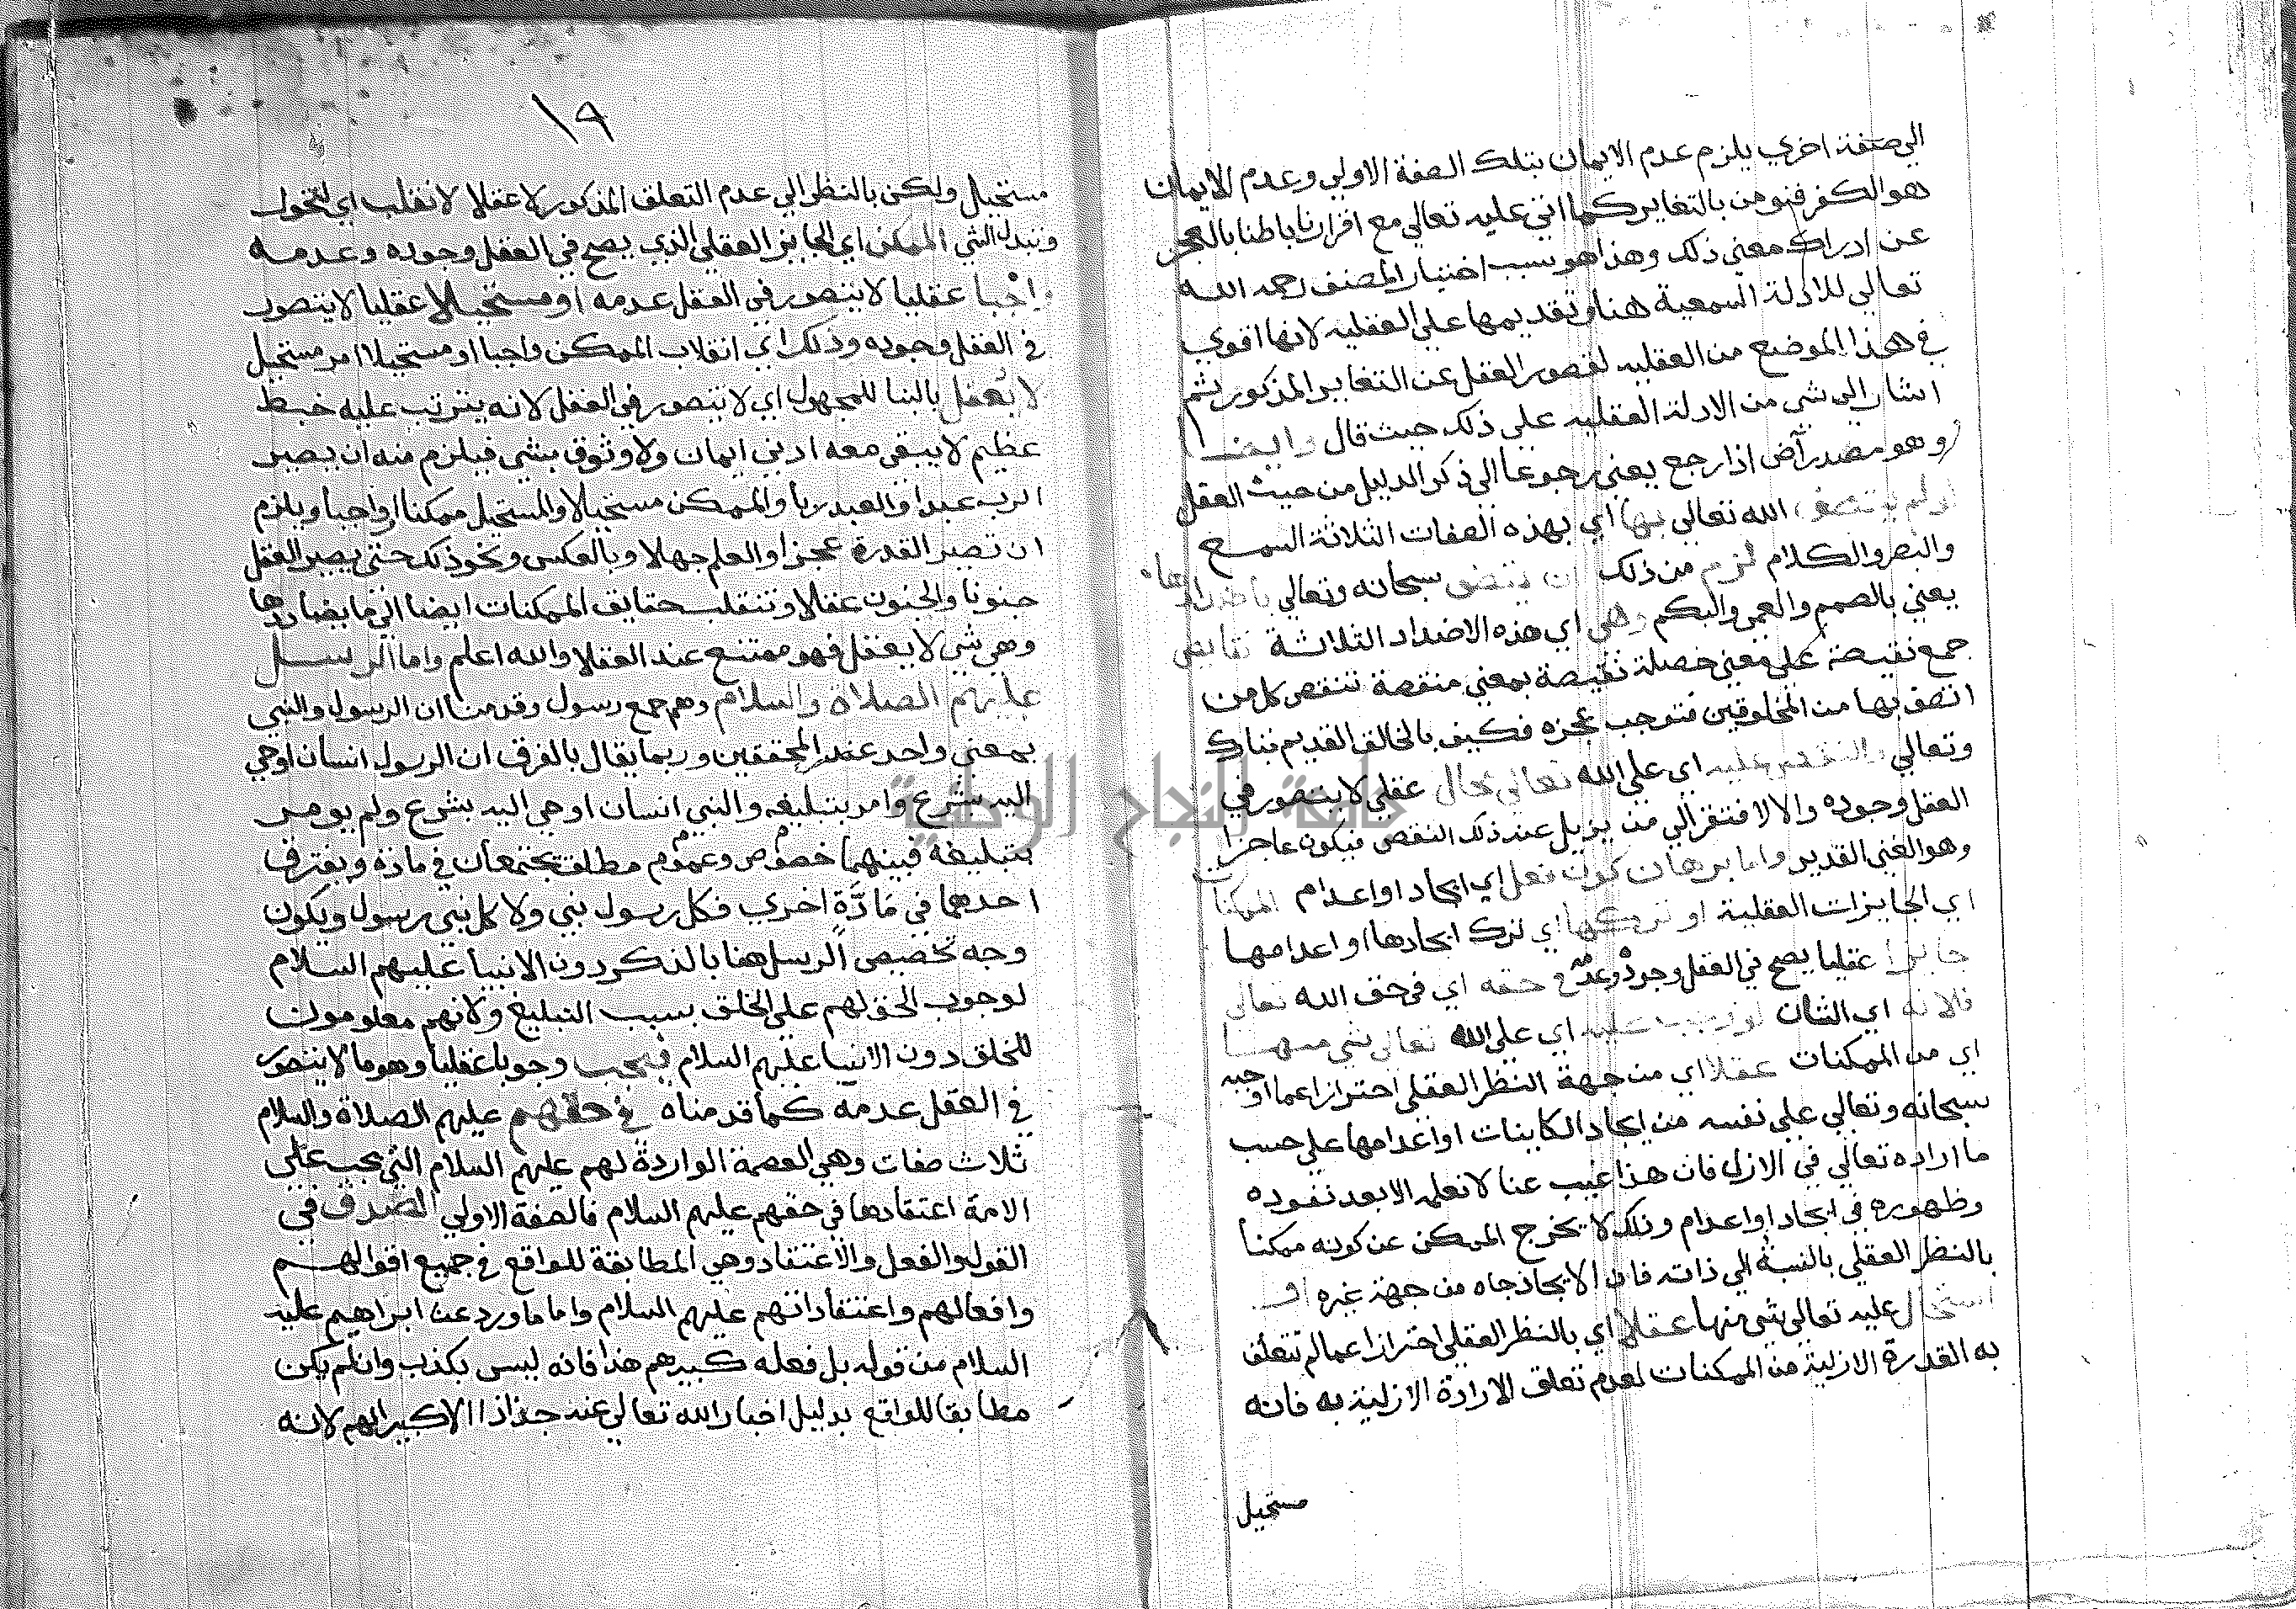 الي صفة اخري يلزم عدم الايمان بتلك الصفة الاولي وعدم الايمان
هو الكفر فنومن بالتغاير كما اثني عليه تعالي مع اقرارنا باطنا بالعجز
عن ادراك معني ذلك وهذا هو سبب اختيار المصنف رحمه الله
تعالي للادلة السمعية هنا وتقديمها علي العقليه لانها اقوي
في هذا الموضع من العقليه لقصور العقل عن التغاير المذكور ثم
اشار الي شي من الادلة العقليه علي ذلك حيث قال وايضا
وهو مصدر آض اذا رجع يعني رجوعا الي ذكر الدليل من حيث العقل
لو لم يتصف الله تعالي بها اي بهذه الصفات الثلاثة السمع
والبصر والكلام لزم من ذلك ان يتصف سبحانه وتعالي باضدادها
يعني بالصمم والعمي والبكم وهي اي هذه الاضداد الثلاثة نقايص
جمع نقيصة علي معني خصلة نقيصة بمعني منقصة تنقص كل من
اتصف بها من المخلوقين فتوجب عجزه فكيف بالخالق القديم تبارك
وتعالي والنقص عليه اي علي الله تعالي محال عقلي لا يتصور في
العقل وجوده والا لافتقر الي من يزيل عنه ذلك النقص فيكون عاجزا
وهو الغني القدير واما برهان كون فعل اي ايجاد او اعدام الممكنات
اي الجايزات العقلية او تركها اي ترك ايجادها او اعدامها
جايزا عقليا يصح في العقل وجوده وعدمه في حقه اي في حق الله تعالي
فلانه اي الشان لو وجب عليه اي علي الله تعالي شي منها
اي من الممكنات عقلا اي من جهة النظر العقلي احترازا عما اوجبه
سبحانه وتعالي علي نفسه من ايجاد الكاينات او اعدامها علي حسب
ما اراده تعالي في الازل فان هذا غيب عنا لا نعلمه الا بعد نفوده
وظهوره في ايجاد او اعدام وذلك لا يخرج الممكن عن كونه ممكنا
بالنظر العقلي بالنسبة الي ذاته فان الايجاد جاه من جهة غيره او
استحال عليه تعالي شي منها عقلا اي بالنظر العقلي احترازا عما لم تتعلق
به القدرة الازلية من الممكنات لعدم تعلق الارادة الازلية به فانه
مستحيل
١٩
مستحيل ولكن بالنظر الي عدم التعلق المذكور لا عقلا لانقلب اي لتحول
وتبدل الشي الممكن اي الجايز العقلي الذي يصح في العقل وجوده وعدمه
واجبا عقليا لا يتصور في العقل عدمه او مستحيلا عقليا لا يتصور
في العقل وجوده وذلك اي انقلاب الممكن واجبا او مستحيلا امر مستحيل
لا يعقل بالبنا للمجهول اي لا يتصور في العقل لانه يترتب عليه خبط
عظيم لا يبقي معه ادني ايمان ولا وثوق بشي فيلزم منه ان يصير
الرب عبدا والعبد ربا والممكن مستحيلا والمستحيل ممكنا او واجبا ويلزم
ان تصير القدرة عجزا والعلم جهلا وبالعكس ونحو ذلك حتي يصير العقل
جنونا والجنون عقلا وتنقلب حقايق الممكنات ايضا الي ما يضاددها
وهي شي لا يعقل فهو ممتنع عند العقلا والله اعلم واما الرسل
عليهم الصلاة والسلام وهم جمع رسول وقدمنا ان الرسول والنبي
بمعني واحد عند المحققين وربما يقال بالفرق ان الرسول انسان اوحي
اليه بشرع وامر بتبليغه والنبي انسان اوحي اليه بشرع ولم يومر
بتبليغه فبينهما خصوص وعموم مطلق يجتمعان في مادة ويفترق
احدهما في مادّة اخري فكل رسول نبي ولا كل نبي رسول ويكون
وجه تخصيص الرسل هنا بالذكر دون الانبيا عليهم السلام
لوجوب الحق لهم علي الخلق بسبب التبليغ ولانهم معلومون
للخلق دون الانبيا عليهم السلام فيجب وجوبا عقليا وهو ما لا يتصور
في العقل عدمه كما قدمناه في حقهم عليهم الصلاة والسلام
ثلاث صفات وهي العصمة الواردة لهم عليهم السلام التي يجب علي
الامة اعتقادها في حقهم عليهم السلام فالصفة الاولي الصدق في
القول والفعل والاعتقاد وهي المطابقة للواقع في جميع اقوالهم
وافعالهم واعتقاداتهم عليهم السلام واما ما ورد عن ابراهيم عليه
السلام من قوله بل فعله كبيرهم هذا فانه ليس بكذب وان لم يكن
مطابقا للواقع بدليل اخبار الله تعالي عنه جذاذا الا كبيرا لهم لانه
جامعة النجاح الوطنية